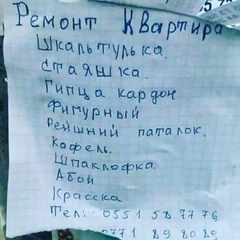 Ремонт Квартира
Шкальтулька.
Стаяшка.
Гипца кардон
Фигурный
Рейшний паталок.
Кафель.
Шпаклофка
Абой
Красска
Тел: 0551 58 77 76
0771 89 80 89